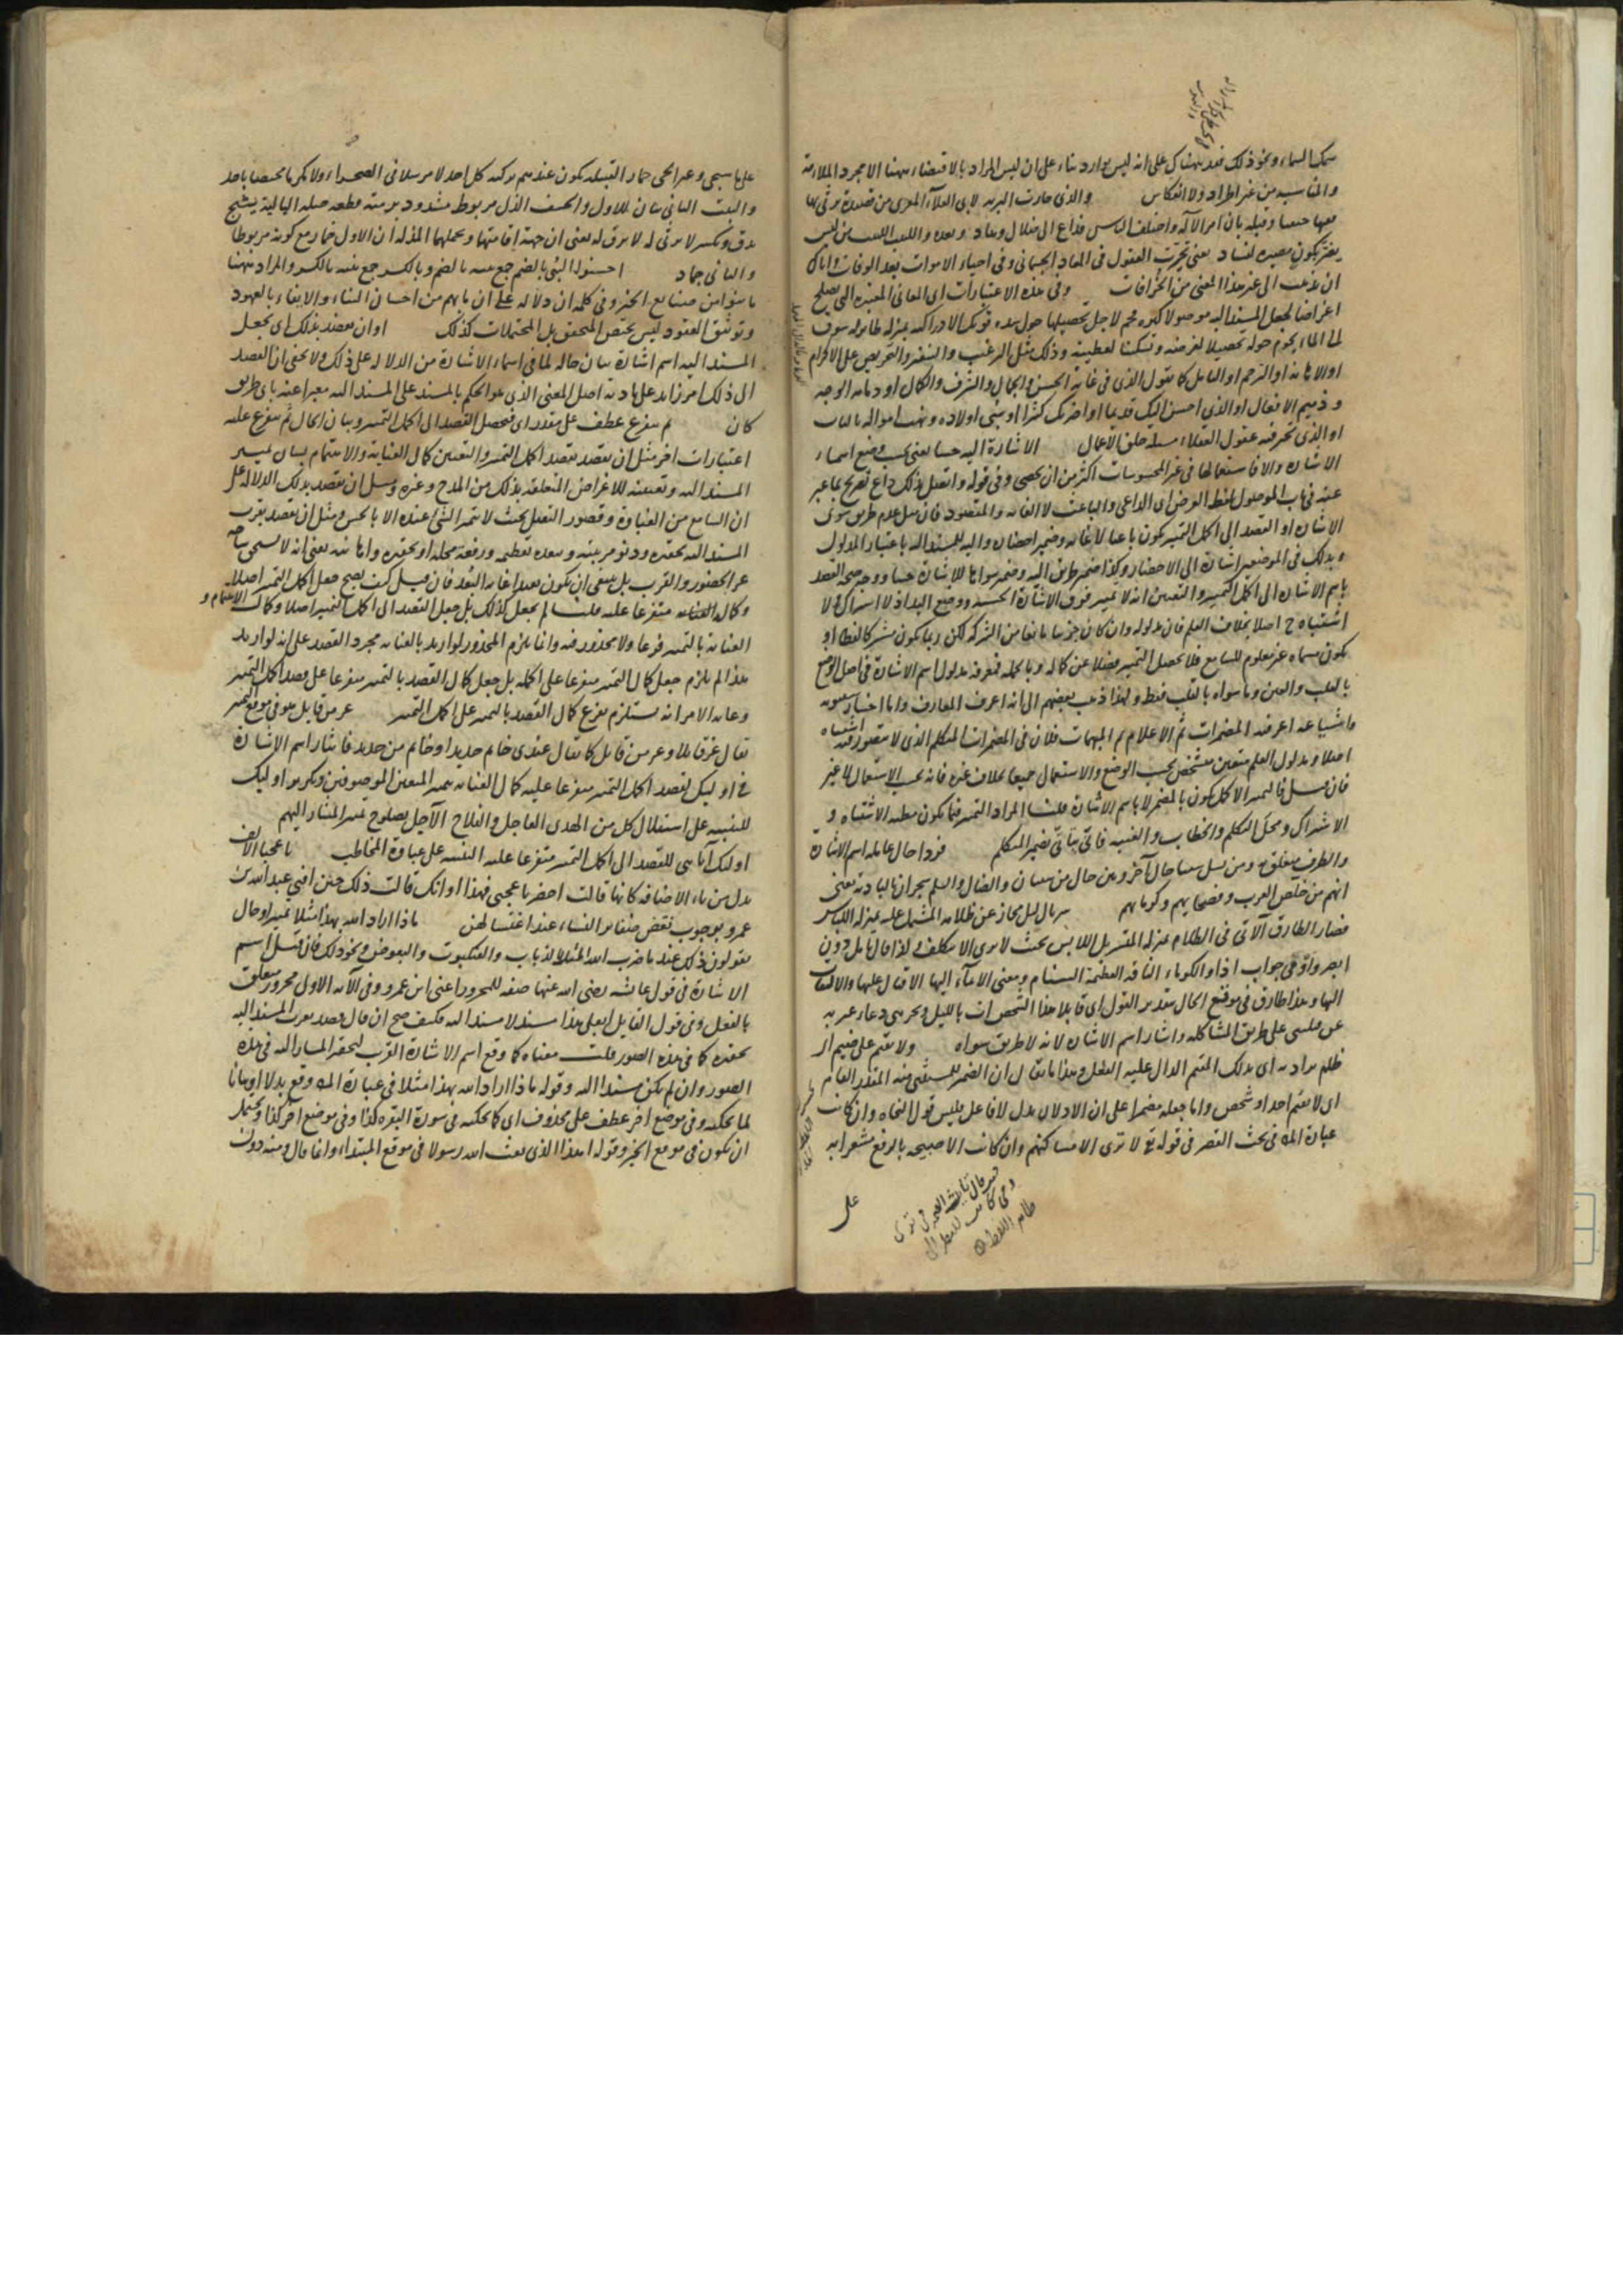 سمك السماء ونحو ذلك فقد يهناك على انه ليس بوارد بناء على ان ليس المراد بالاقتضاء ههنا الا مجرد الملاءمة
والمناسبة من غير اطراد ولا انعكاس والذى حارت البرية لابى العلآء المعرى من قصيدة يرثى بها
فقيها حنفيا وقبله بان امر الآله واختلف الناس فداع الى ضلال وهاد وبعده واللبيب اللبيب من ليس
يغتر بكون مصيره لفساد يعنى تحيرت العقول فى المعاد الجسمانى وفى احياء الاموات بعد الوفات واياك
ان تذهب الى غير هذا المعنى من الخرافات وفى هذه الاعتبارات اى المعانى المعتبرة التى يصلح
اغراضا لجعل المسند اليه موصولا كثرة
لى الماء يحوم حوله تحصيلا لغرضه وتسكينا لعطشه وذلك مثل الترغيب والتنفير والتحريض على الاكرام
او الاهانة او الترحم او كما يقول الذى فى غاية الحسن والجمال والشرف والكمال او دمامة الوجه
وذميم الافعال او الذى احسن اليك قديما او اضر بك كثيرا او سبى اولاده ونهب امواله
او الذى تحير فيه عقول العقلاء مسئلة خلق الاعمال الاشارة اليه حسا يعنى بحسب وضع اسماء
الاشارة والا فاستعمالها فى غير المحسوسات اكثر من ان يحصى وفى قوله واتصل بذلك داع تصريح بما عبر
عنه فى باب الموصول بلفظ الغرض اى الداعى والباعث لا الغاية والمقصود فان مثل عدم طريق سوى
الاشارة او القصد الى اكمل التمييز يكون باعثا لا غاية وضمير احضاره واليه للمسند اليه باعتبار المدلول
وبذلك فى الموضعين اشارة الى الاحضار وكذا ضمير طريق اليه وضمير سواها للاشارة حسا ووجه صحة القصد
باسم الاشارة الى اكمل التمييز والتعيين انه لا تمييز فوق الاشارة الحسية ووضع اليد اذ لا اشتراك ولا
اشتباه ح اصلا بخلاف العلم فان مدلوله وان كان جزئيا مانعا من الشركة لكن ربما يكون مشتركا لفظا او
يكون مسماه غير معلوم للسامع فلا يحصل التمييز فضلا عن كماله وبالجملة فمعرفة مدلول اسم الاشارة فى اصل الوضع
بالقلب والعين وما سواه بالقلب فقط ولهذا ذهب بعضهم الى انه اعرف المعارف واما اختيار سيبويه
واشياعه اعرفية المضمرات ثم الاعلام ثم المبهمات فلان فى المضمرات المتكلم الذى لا يتصور فيه اشتباه
اصلا ومدلول العلم متعين مشخص بحسب الوضع والاستعمال جميعا بخلاف غيره فانه بحسب الاستعمال لا غير
فان قيل فالتمييز الاكمل يكون بالمضمر لا باسم الاشارة قلنا المراد التمييز فيما يكون مظنة الاشتباه و
الاشتراك ومحل التكلم والخطاب والغيبة فانى يتاتى بضمير المتكلم فردا حال عامله اسم الاشارة
والظرف متعلق به ومن نسل شيبان حال آخر وبين حال من شيبان والضال والسلم شجران بالبادية يعنى
انهم من خلص العرب وفصحايهم وكرمايهم سربال ليل مجاز عن ظلامه المشتمل عليه بمنزلة اللباس
فصار الطارق الآتى فى الظلام بمنزلة المتسربل اللابس بحيث لا يرى الا بتكلف ولذا قال تامل دون
ابصر واو فى جواب اذا والكوماء الناقة العظيمة السنام ومعنى الايماء اليها الاقبال عليها والالتفات
اليها وهذا طارق فى موقع الحال بتقدير القول اى قائلا هذا
على طريق المشاكلة واشار اسم الاشارة لانه لا طريق سواه ولا يقيم على ضيم اى
ظلم يراد به اى بذلك المقيم الدال عليه الفعل وهذا ما يقال ان الضمير للمستثنى منه المقدر العام
اى لا يقيم احد او شخص واما جعله مضمرا على ان الاذلان بدل لا فاعل فليس قول النحاة وان كانت
عبارة المص فى بحث القصر فى قوله تع لا ترى الا مساكنهم وان كانت الا صيحة بالرفع مشعرا به
على
على ما سيجى وعير الحى حمار القبيلة يكون عندهم يركبه كل احد لا مرسلا فى الصحراء ولا مكرما مختصا باحد
والبيت الثانى بيان للاول والخسف الذل مربوط مشدود برمته بقطعة حبله البالية يشج
يدق ويكسر لا يرثى له لا يرق له يعنى ان جهة اقامتهما وتحملهما المذلة ان الاول حمار مع كونه مربوطا
والثانى جماد احسنوا البنى بالضم جمع بنية بالضم وبالكسر جمع بنية بالكسر والمراد ههنا
ما بنوا من صنايع الخير وفى كلمة ان دلالة على ان ما بهم من احسان البناء والايفاء بالعهود
وتوثيق العقود ليس يختص المحقق بل المحتملات كذلك او ان يقصد بذلك اى بجعل
المسند اليه اسم اشارة بيان حاله لما فى اسماء الاشارة من الدلالة على ذلك ولا يخفى ان القصد
الى ذلك امر زايد على تادية اصل المعنى الذى هو الحكم بالمسند على المسند اليه معبرا عنه باى طريق
كان ثم يتفرع عطف على مقدر اى فيحصل القصد الى اكمل التمييز وبيان الحال ثم يتفرع عليه
اعتبارات اخر مثل ان يقصد بقصد اكمل التمييز والتعيين كمال العناية والاهتمام بشان تمييز
المسند اليه وتعيينه للاغراض المتعلقة بذلك من المدح وغيره ومثل ان يقصد بذلك الدلالة على
ان السامع من الغباوة وقصور التعقل بحيث لا يتميز الشئ عنده الا بالحس ومثل ان يقصد بقرب
المسند اليه تحقيره ودنو مرتبته وببعده تعظيمه ورفعة محله او تحقيره
عز الحضور والقرب بل ينبغى ان يكون بعيدا غاية البعد فان قيل كيف يصح جعل اكمل التمييز اصلا
وكمال العناية متفرعا عليه قلنا لم يجعل كذلك بل جعل القصد الى اكمل التمييز اصلا وكمال الاهتمام و
العناية بالتمييز فرعا ولا محذور فيه وانما يلزم المحذور لو اريد بالعناية مجرد القصد على انه لو اريد
هذا لم يلزم جعل كمال التمييز متفرعا على اكمله بل جعل كمال القصد بالتمييز متفرعا على قصد اكمل التمييز
وغاية الامر انه يستلزم تفرع كمال القصد بالتمييز على اكمل التمييز عز من قايل هو فى موقع التمييز
يقال عز قائلا وعز من قايل كما يقال عندى خاتم حديدا وخاتم من حديد فايثار اسم الاشارة
فى اوليك لقصد اكمل التمييز متفرعا عليه كمال العناية بتمييز المتقين الموصوفين وتكرير اوليك
للتنبيه على استقلال كل من الهدى العاجل والفلاح الآجل بصلوح تمييز المشار اليهم
اولئك آبائى للقصد الى اكمل التمييز متفرعا عليه التنبيه على غباوة المخاطب يا عجبا الالف
بدل من ياء الاضافة كانها قالت احضر يا عجبى فهذا اوانك قالت ذلك حين افتى عبد الله بن
عمرو بوجوب نقض ضفاير النساء عند اغتسالهن ماذا اراد الله بهذا مثلا تمييز او حال
يقولون ذلك عند ما ضرب الله المثل بالذباب والعنكبوت والبعوض ونحو ذلك فان قيل اسم
الاشارة فى قول عائشة رضى الله عنها صفة للمجرور اعنى ابن عمرو وفى الآية الاولى مجرور متعلق
بالفعل وفى قول القايل ابعلى هذا مسند لا مسند اليه فكيف صح ان قال وقصد بقرب المسند اليه
تحقيره كما فى هذه الصور قلت معناه كما وقع اسم الاشارة القرب لتحقير المشار اليه فى هذه
الصور وان لم يكن مسندا اليه وقوله ماذا اراد الله بهذا مثلا فى عبارة المص وقع بدلا او بيانا
لما يحكيه وفى موضع اخر عطف على محذوف اى كما يحكيه فى سورة البقرة كذا وفى موضع اخر كذا ويحتمل
ان يكون فى موقع الخبر وقوله اهذا الذى بعث الله رسولا فى موقع المبتداء وانما قال ومنه دون